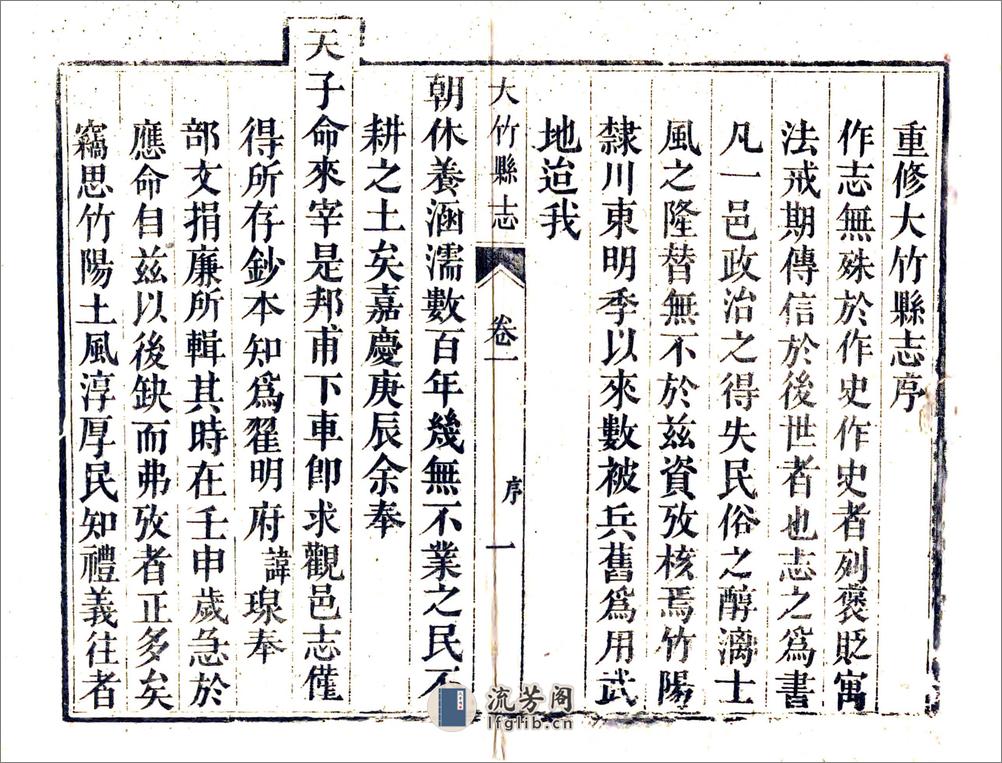 重修大竹縣志序
作志無殊於作史作史者列褒貶寓
法戒期傳信於後世者也志之爲書
凡一邑政治之得失民俗之醇漓士
風之隆替無不於兹資攷核焉竹陽
隸川東明季以來數被兵舊爲用武
地迨我
大竹縣志 卷一 序 一
朝休養涵濡數百年幾無不業之民不
耕之土矣嘉慶庚辰余奉
天子命來宰是邦甫下車卽求觀邑志僅
得所存鈔本知爲翟明府諱瑔奉
部文捐廉所輯其時在壬申歲急於
應命自兹以後缺而弗攷者正多矣
竊思竹陽土風淳厚民知禮義往者
流芳阁
lfglib.cn